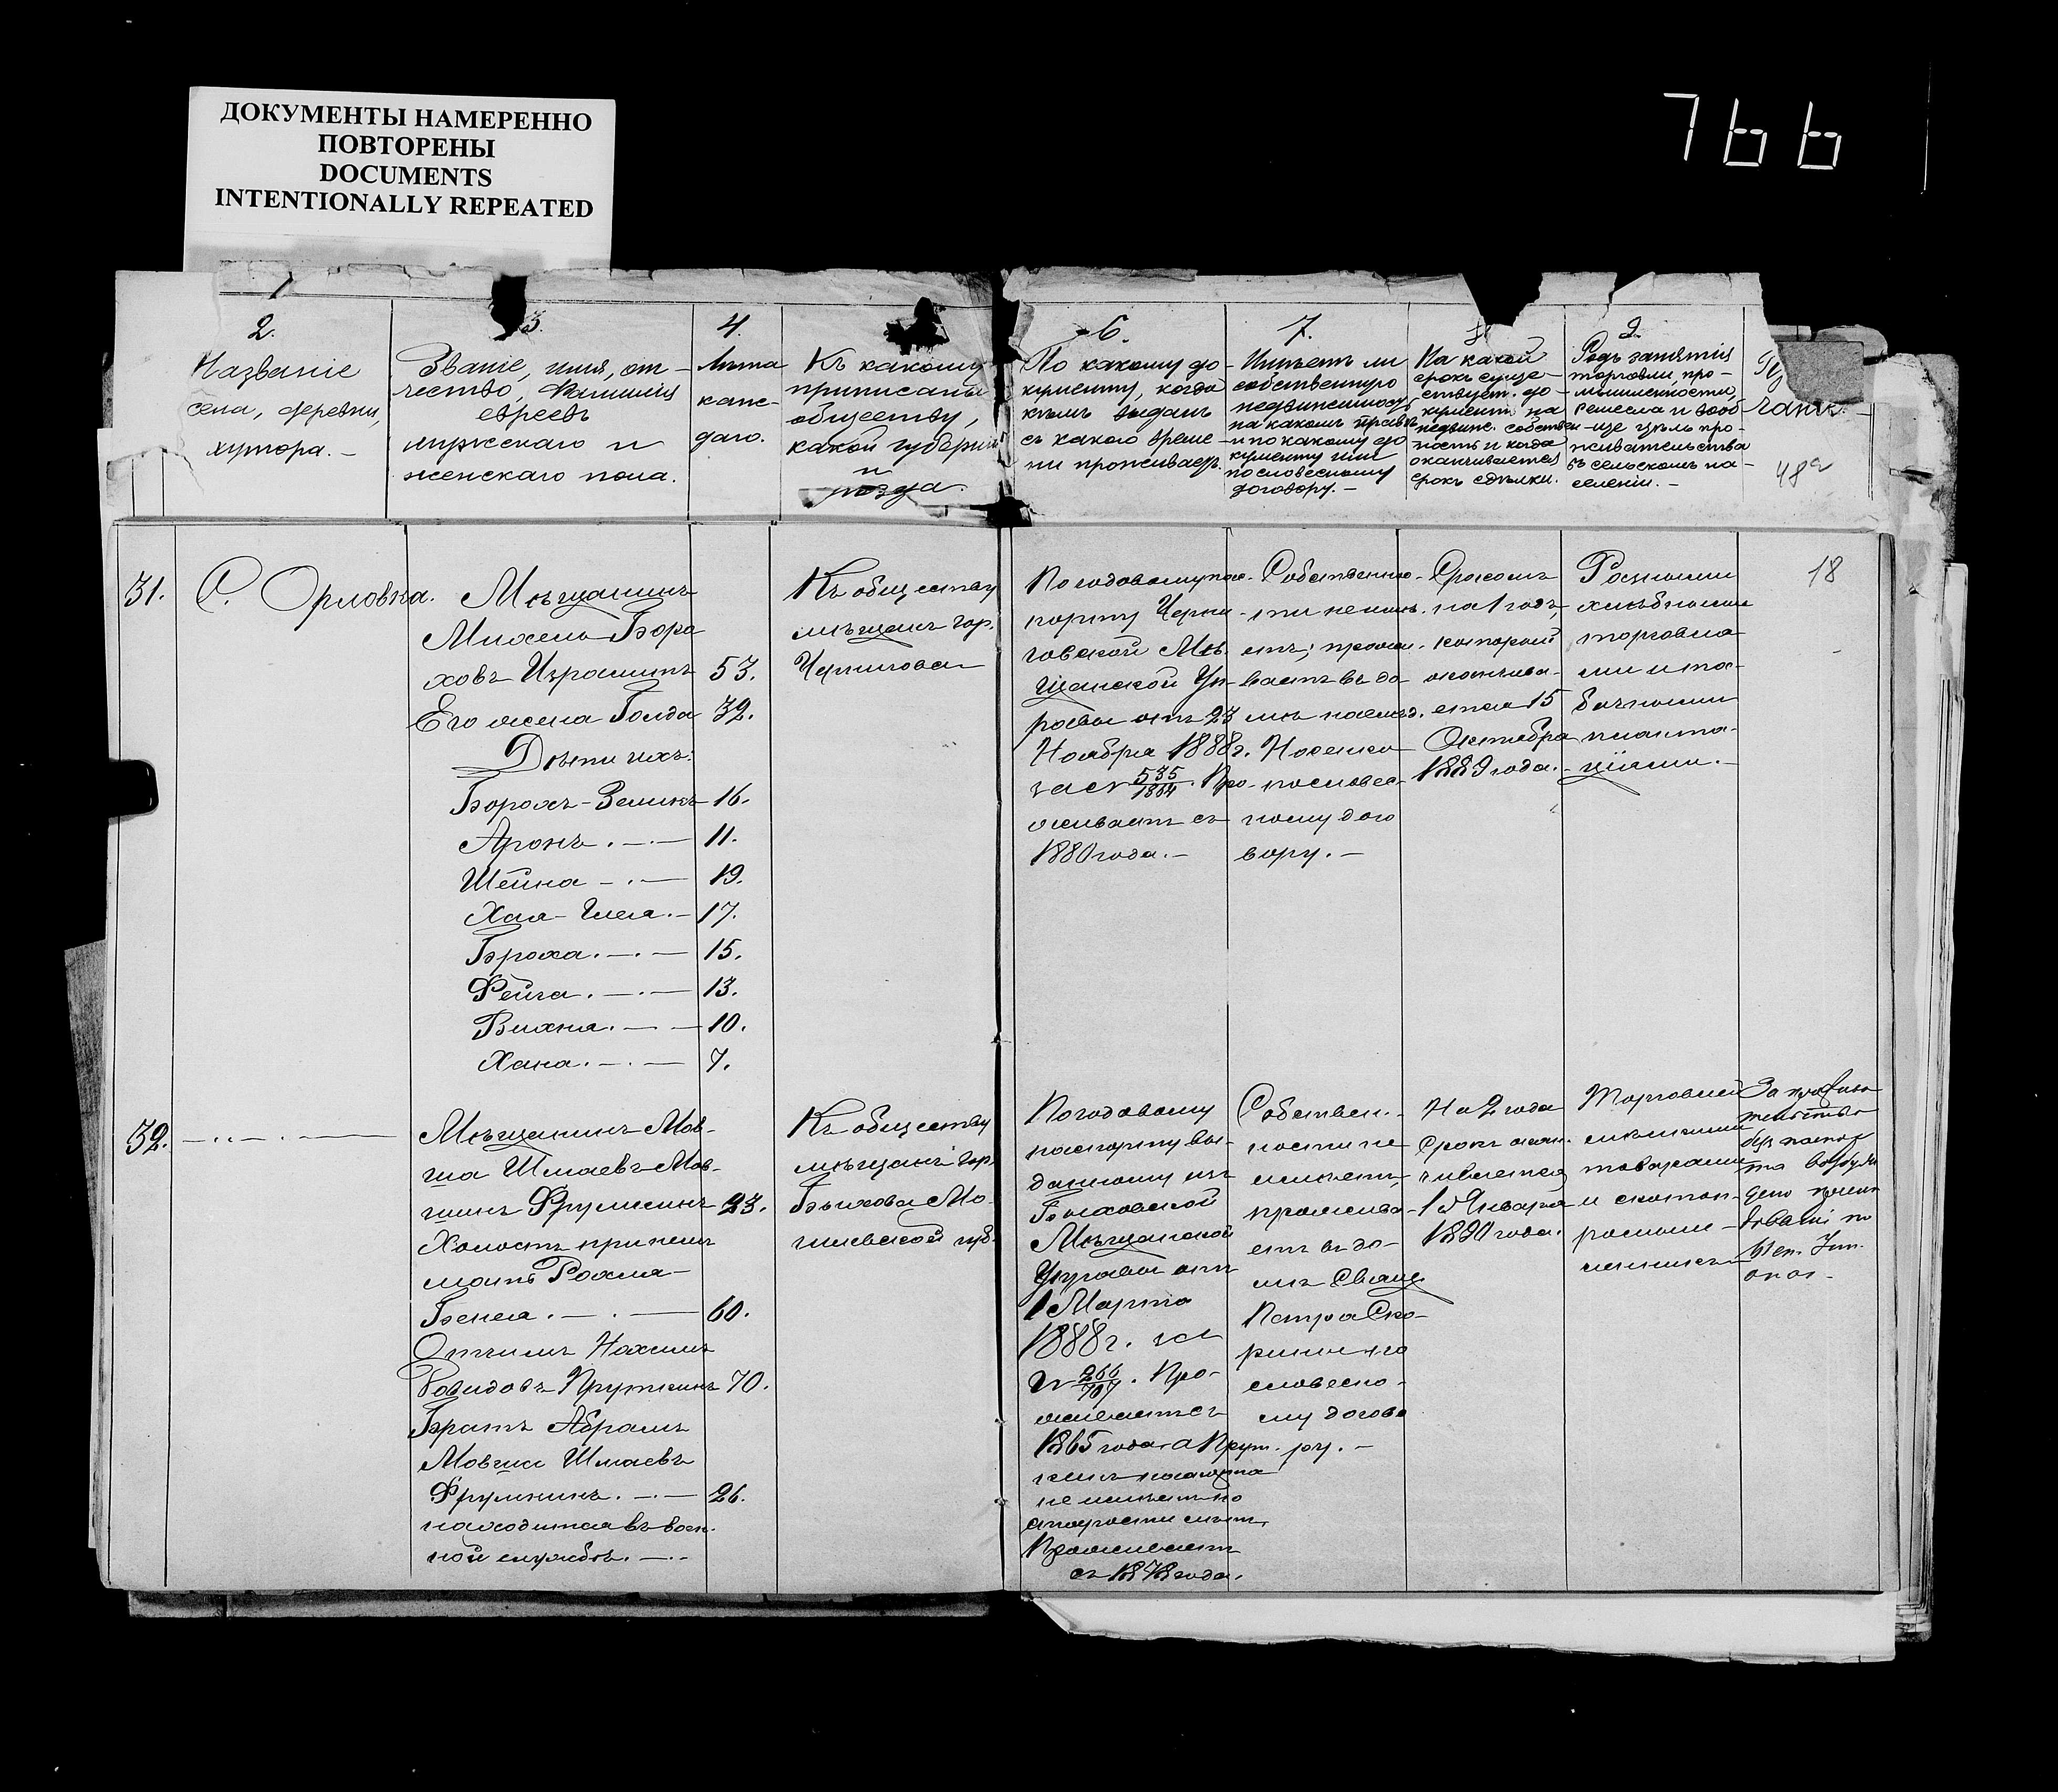 ДОКУМЕНТЫ НАМЕРЕННО
ПОВТОРЕНЫ
DOCUMENTS
INTENTIONALLY REPEATED
766
2.
Названіе
села, деревни,
хутора. –
3.
Званіе, имя, от-
чество, Фамилия
евреевъ
мужскаго и
женскаго пола.
4.
Лѣта
каж-
даго.
Къ какому
приписаны
обществу,
какой губерніи
и
уѣзда.
6.
По какому до-
кументу, когда
кѣмъ выданъ
съ какого време-
ни проживаетъ.
7.
Имѣетъ ли
собственную
недвижимость
на какомъ правѣ
и по какому до
кументу или
по словесному
договору. –
На какой
срокъ суще-
ствует. до-
кументъ на
недвиж. собствен-
ность и когда
оканчивается
срокъ сдѣлки.
9.
Родъ занятія
торговли, про-
мышленности,
ремесла и вооб-
ще цѣль про-
живательства
въ сельскомъ на-
селеніи. –
48а
31.
С. Орловка.
Мѣщанинъ
Михель Боро
ховъ 53.
Его жена Голда 32.
Дѣти ихъ:
Борохъ-Зеликъ 16.
Аронъ. –·– 11.
Шейна –·– 19.
Хая- 17.
Броха. –·– 15.
Фейга. –·– 13.
Вихна. –·– 10.
Хана. –·– 7.
Къ обществу
мѣщанъ гор.
Чернигова
По годовому пас-
порту Черни-
говской Мѣ-
щанской Уп-
равы отъ 23
Ноября 1888 г.
за № 535/1864. Про-
живаетъ съ
1880 года. –
Собственно-
сти не имѣ-
етъ; прожи-
ваетъ въ до-
мѣ наслѣд.
по словес-
ному дого
вору. –
Срокомъ
на 1 годъ
который
оканчива-
ется 15
Октября
1889 года. –
Разными
хлѣбными
торговля-
ми и та-
бачными
планта-
ціями. –
18
32.
Мѣщанинъ Мов-
ша Шмаевъ Мов-
шинъ Фрумкинъ 23.
Холостъ при немъ
мать Рохля-
Бейля. –·– 60.
Отчимъ Нахимъ
70.
Братъ Абрамъ
Мовша Шмаевъ
Фрумкинъ. –·– 26.
находится въ воен-
ной службѣ. –·–
Къ обществу
мѣщанъ гор.
Быхова Мо-
гилевской губ.
По годовому
паспорту вы-
данному изъ
Быховской
Мѣщанской
Управы отъ
1 Марта
1888 г. за
№ 266/707. Про-
живаетъ съ
1865 года, а Прут-
кинъ паспорта
не имѣетъ по
старости лѣтъ,
Проживаетъ
съ 1878 года.
Собствен-
ности не
имѣетъ,
прожива-
етъ въ до-
мѣ Свящ.
Петра Ско-
по
словесно-
му догово
ру. –
На 2 года
Срокъ окан-
чивается
1 Января
1890 года.
Торговлей
мелкими
товарами
и скотоп-